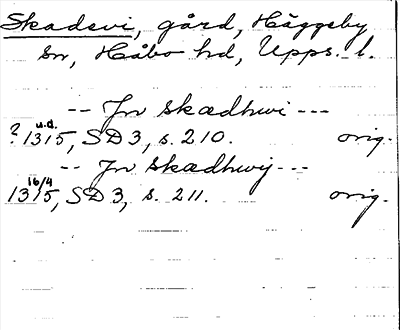 Skadevi, gård, Häggeby
sn, Håbo hd, Upps. l.
-- Jn skædhwi ---
? u.d. 1315, SD 3, s. 210. orig.
-- Jn skædhwij ---
16/4 1315, SD 3, s. 211. orig.